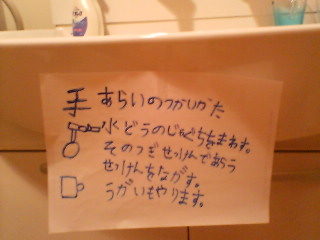 手あらいのつかいかた
水どうのじゃぐちをまわす。
そのつぎせっけんであらう
せっけんをながす。
うがいもやります。